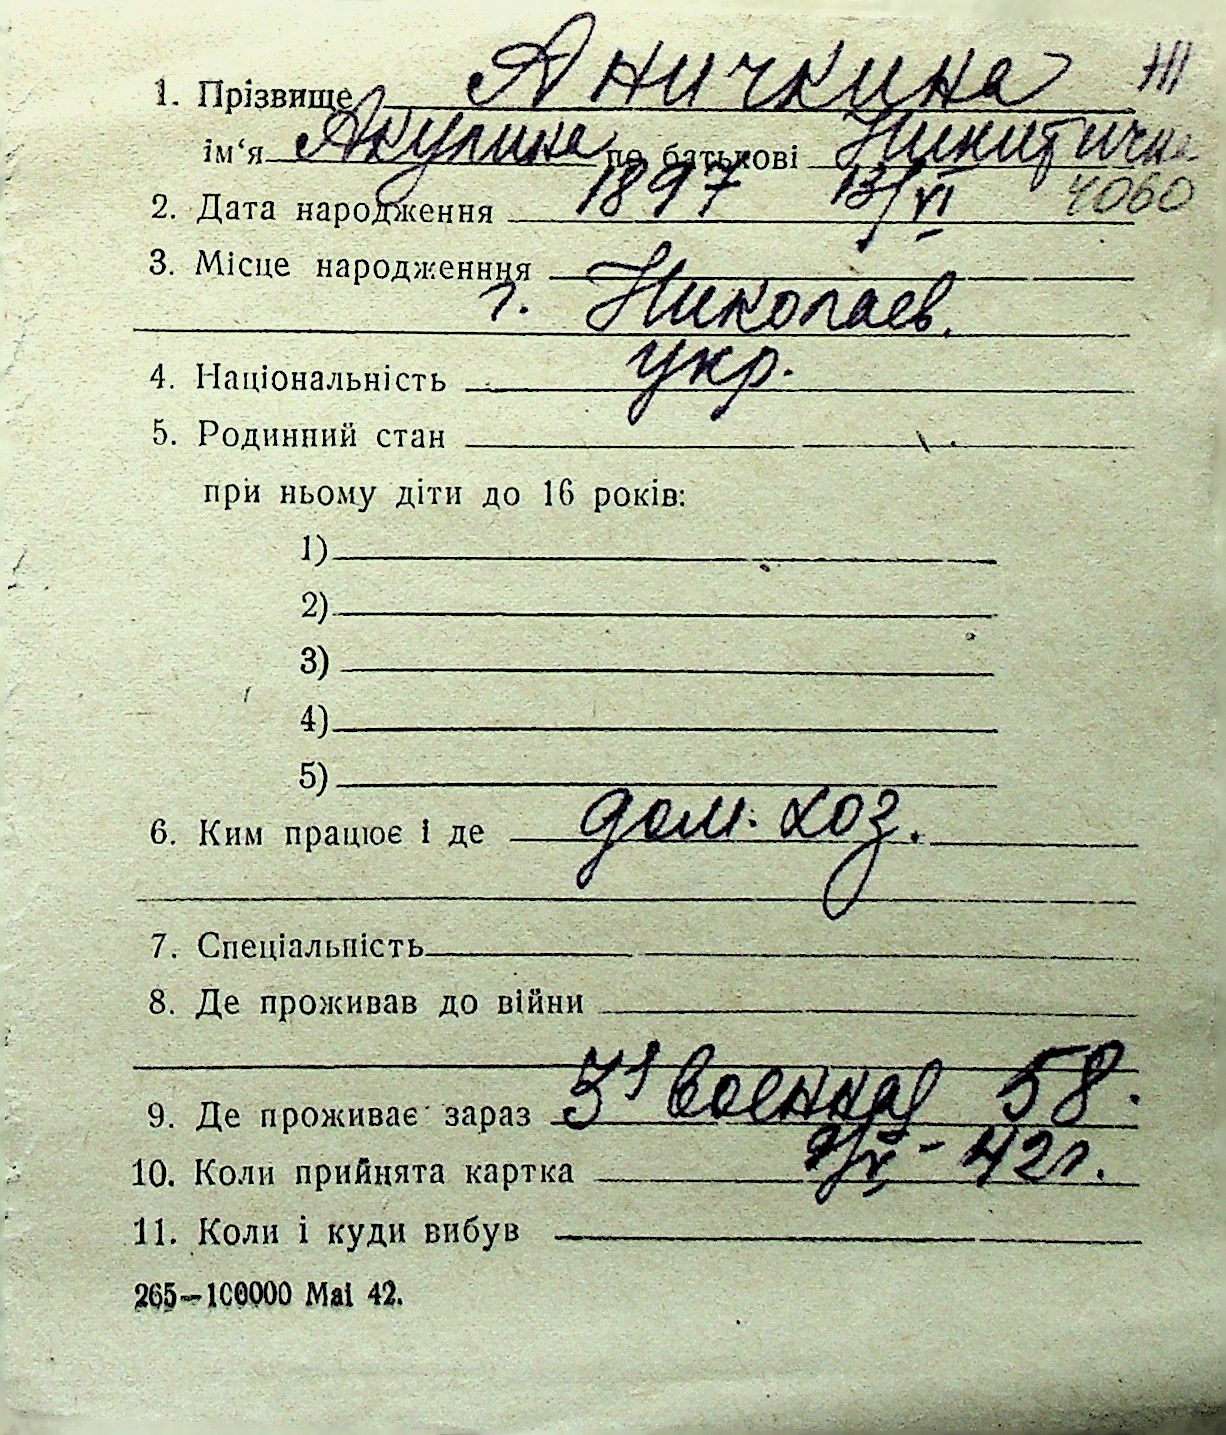 1. Прізвище Аничкина
ім‘я Акулина по батькові Никитична
2. Дата народження 1897 13/VI 4060
3. Місце народженння
г. Николаев.
4. Національність укр.
5. Родинний стан
при ньому діти до 16 років:
1)
2)
3)
4)
5)
6. Ким працює і де дом. хоз.
7. Спеціальність
8. Де проживав до війни
9. Де проживає зараз 3я военная 58.
10. Коли прийнята картка 42г.
11. Коли і куди вибув
265—100000 Mai 42.